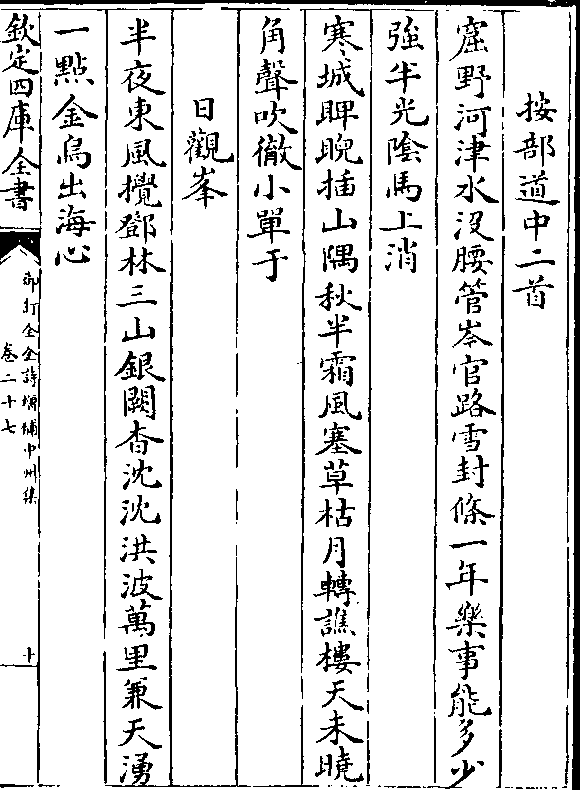 按部道中二首
窟野河津水没腰管岑官路雪封條一年樂事能多少
強半光陰馬上消
寒城睥睨插山隅秋半霜風塞草枯月轉譙樓天未曉
角聲吹徹小單于
日觀峯
半夜東風攪鄧林三山銀闕杳沈沈洪波萬里兼天湧
一點金烏出海心
欽定四庫全書
御訂全金詩增補中州集
卷二十七
十